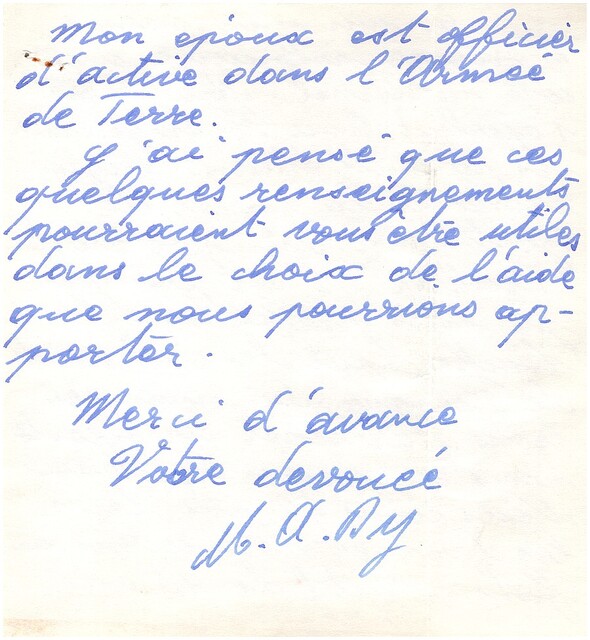 Mon époux est officier
d'active dans l'Armée
de Terre.
J'ai pensé que ces
quelques renseignements
pourraient vous être utiles
dans le choix de l'aide
que nous pourrions ap-
porter.
Merci d'avance
Votre dévouée
M. A. Dy